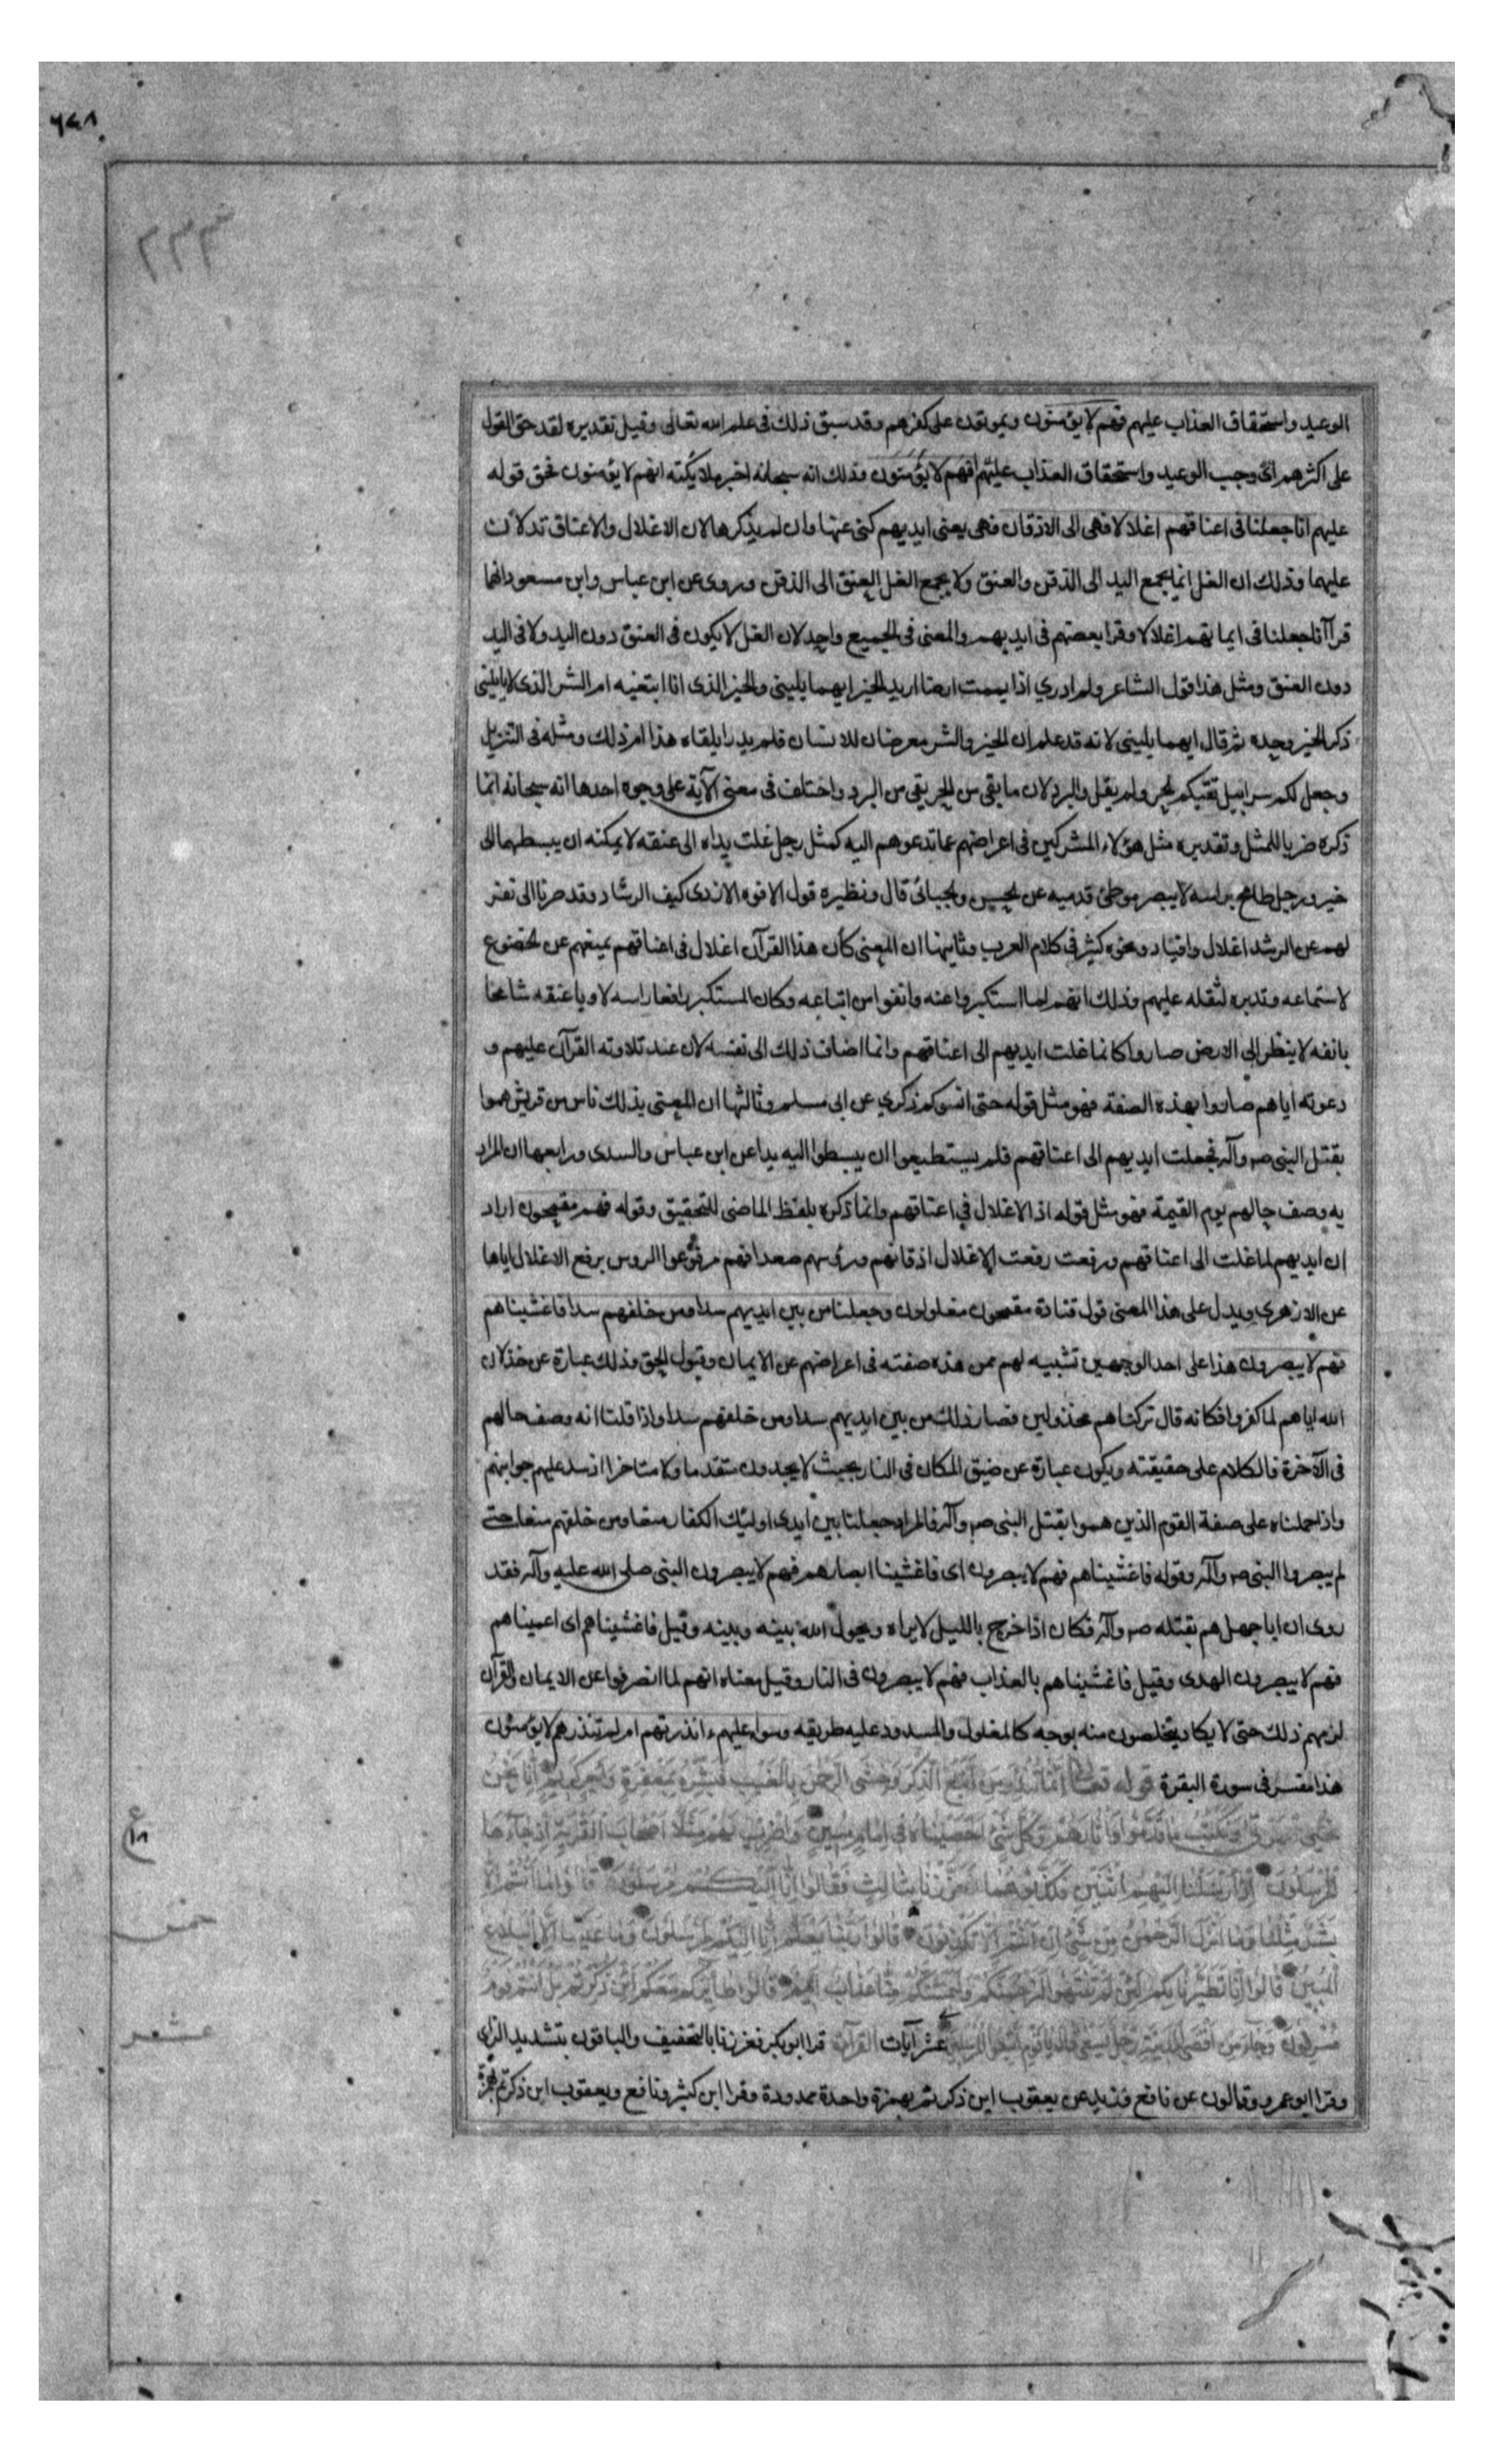 ٦٤٨
٢٣٣
الوعيد واستحقاق العذاب عليهم فهم لا يؤمنون ويموتون على كفرهم وقد سبق ذلك فى علم الله تعالى وقيل تقديره لقد حق القول
على اكثرهم اى وجب الوعيد واستحقاق العذاب عليهم فهم لا يؤمنون وذلك انه سبحانه اخبر ملايكته انهم لا يؤمنون فحق قوله
عليهم انا جعلنا فى اعناقهم اغلالا فهى الى الاذقان فهى يعنى ايديهم كنى عنها وان لم يذكرها لان الاغلال والاعناق تدلان
عليهما وذلك ان الغل انما يجمع اليد الى الذقن والعنق ولا يجمع الغل العنق الى الذقن وروى عن ابن عباس وابن مسعود انهما
قرآ انا جعلنا فى ايمانهم اغلالا وقرا بعضهم فى ايديهم والمعنى فى الجميع واحد لان الغل لا يكون فى العنق دون اليد ولا فى اليد
دون العنق ومثل هذا قول الشاعر ولم ادري اذا يممت ارضا اريد الخير ايهما يلينى والخير الذى انا ابتغيه ام الشر الذى لا ياتلينى
ذكر الخير وحده ثم قال ايهما يلينى لانه قد علم ان الخير والشر معرضان للانسان فلم يدر ايلقاه هذا ام ذلك ومثله فى التنزيل
وجعل لكم سرابيل تقيكم الحر ولم يقل والبرد لان ما يقى من الحر يقى من البرد واختلف فى معنى الآية على وجوه احدها انه سبحانه انما
ذكره ضربا للمثل وتقديره مثل هؤلاء المشركين فى اعراضهم عما تدعوهم اليه كمثل رجل غلت يداه الى عنقه لا يمكنه ان يبسطهما الى
خير ورجل طامح براسه لا يبصر موطئ قدميه عن الحسين والجبائى قال ونظيره قول الافوه الازدى كيف الرشاد وقد صرنا الى نفر
لهم عن الرشد اغلال واقياد ونحوه كثير فى كلام العرب وثانيها ان المعنى كأن هذا القرآن اغلال فى اعناقهم يمنعهم عن الخضوع
لاستماعه وتدبره لثقله عليهم وذلك انهم لما استكبروا عنه وانفوا من اتباعه وكان المستكبر رافعا راسه لاويا عنقه شامخا
بانفه لا ينظر الى الارض صاروا كانما غلت ايديهم الى اعناقهم وانما اضاف ذلك الى نفسه لان عند تلاوته القرآن عليهم و
دعوته اياهم صاروا بهذه الصفة فهو مثل قوله حتى انسوكم ذكري عن ابى مسلم وثالثها ان المعنى بذلك ناس من قريش هموا
بقتل النبى صم وآله فجعلت ايديهم الى اعناقهم فلم يستطيعوا ان يبسطوا اليه يدا عن ابن عباس والسدى ورابعها ان المراد
به وصف حالهم يوم القيمة فهو مثل قوله اذ الاغلال فى اعناقهم وانما ذكره بلفظ الماضى للتحقيق وقوله فهم مقمحون اراد
ان ايديهم لما غلت الى اعناقهم ورفعت رفعت الاغلال اذقانهم ورؤسهم صعدا فهم مرفوعوا الروس برفع الاغلال اياها
عن الازهرى ويدل على هذا المعنى قول قتادة مقمحون مغلولون وجعلنا من بين ايديهم سدا ومن خلفهم سدا فاغشيناهم
فهم لا يبصرون هذا على احد الوجهين تشبيه لهم بمن هذه صفته فى اعراضهم عن الايمان وقبول الحق وذلك عبارة عن خذلان
الله اياهم لما كفروا فكانه قال تركناهم مخذولين فصار ذلك من بين ايديهم سدا ومن خلفهم سدا واذا قلنا انه وصف حالهم
فى الآخرة فالكلام على حقيقته ويكون عبارة عن ضيق المكان فى النار بحيث لا يجدون متقدما ولا متاخرا اذ سد عليهم جوانبهم
واذا حملناه على صفة القوم الذين هموا بقتل النبى صم وآله فالمراد جعلنا بين ايدى اولئك الكفار منعا ومن خلفهم منعا حتى
لم يبصروا النبى صم وآله وقوله فاغشيناهم فهم لا يبصرون اى فاغشينا ابصارهم فهم لا يبصرون النبى صلى الله عليه وآله فقد
روى ان ابا جهل هم بقتله صم وآله فكان اذا خرج بالليل لا يراه ويحول الله بينه وبينه وقيل فاغشيناهم اى اعميناهم
فهم لا يبصرون الهدى وقيل فاغشيناهم بالعذاب فهم لا يبصرون فى النار وقيل معناه انهم لما انصرفوا عن الايمان والقرآن
لزمهم ذلك حتى لا يكاد يتخلصون منه بوجه كالمغلول والمسدود عليه طريقه وسواء عليهم ءانذرتهم ام لم تنذرهم لا يؤمنون
هذا مفسر فى سورة البقرة قوله تعالى إنما تنذر من اتبع الذكر وخشي الرحمن بالغيب فبشره بمغفرة وأجر كريم إنا نحن
نحيي الموتى ونكتب ما قدموا وآثارهم وكل شئ أحصيناه في إمام مبين واضرب لهم مثلا أصحاب القرية إذ جاءها
المرسلون إذ أرسلنا إليهم اثنين فكذبوهما فعززنا بثالث فقالوا إنا إليكم مرسلون قالوا ما أنتم إلا
بشر مثلنا وما أنزل الرحمن من شئ إن أنتم إلا تكذبون قالوا ربنا يعلم إنا إليكم لمرسلون وما علينا إلا البلاغ
المبين قالوا إنا تطيرنا بكم لئن لم تنتهوا لنرجمنكم وليمسنكم منا عذاب أليم قالوا طائركم معكم أئن ذكرتم بل أنتم قوم
مسرفون وجاء من أقصى المدينة رجل يسعى قال يا قوم اتبعوا المرسلين عشر آيات القرآءة قرا ابو بكر فعززنا بالتخفيف والباقون بتشديد الزاى
وقرا ابو عمرو وقالون عن نافع وزيد عن يعقوب اين ذكرتم بهمزة واحدة ممدودة وقرا ابن كثير ونافع ويعقوب اين ذكرتم بهمزة
ع
١٨
خمس
عشر